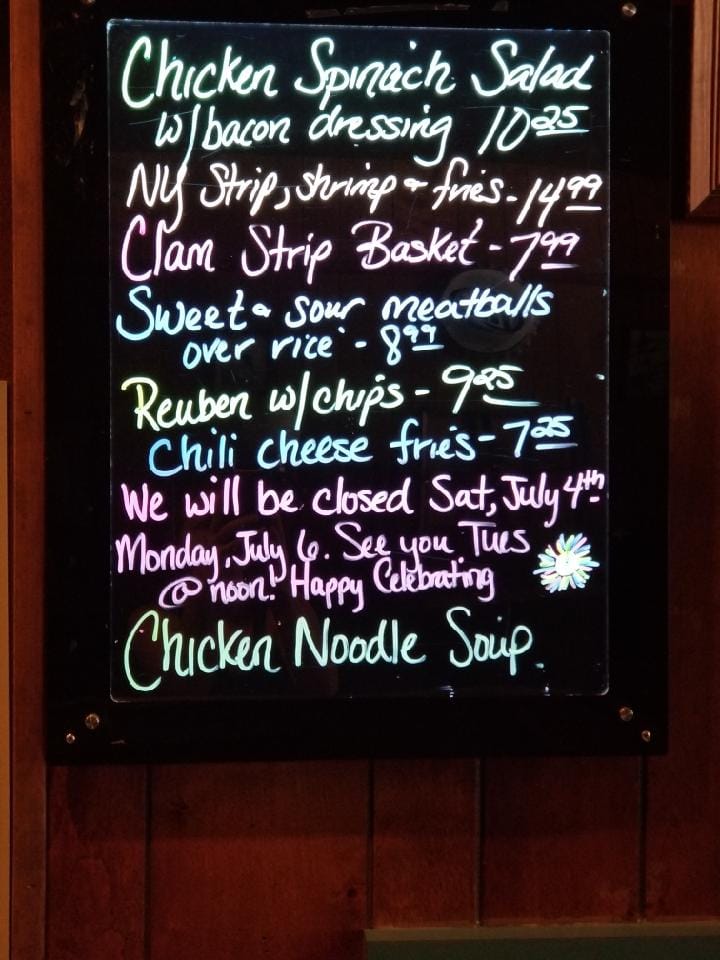 Chicken Spinach Salad
w/bacon dressing 10 25
NY Strip, shrimp & fries - 14 99
Clam Strip Basket - 7 99
Sweet & sour meatballs
over rice - 8 99
Reuben w/chips - 9 25
Chili cheese fries - 7 25
We will be closed Sat, July 4th
Monday, July 6. See you Tues
@ noon! Happy Celebrating
Chicken Noodle Soup.